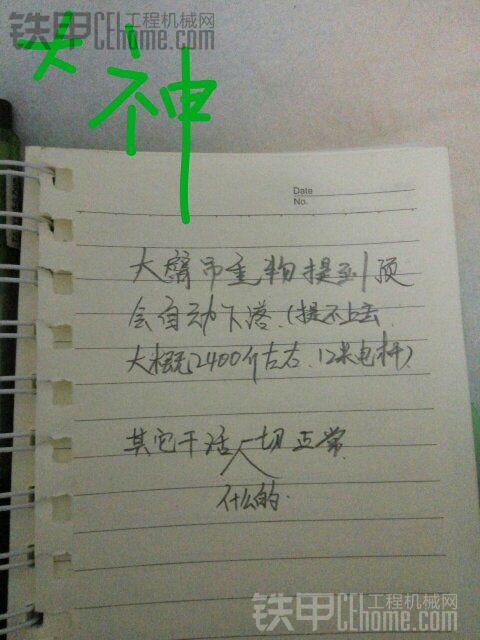 铁甲 工程机械网
CEhome.com
大神
Date
No.
大臂吊重物提到顶
会自动下落.(提不上去.
大概2400斤左右.12米电杆)
其它干活一切正常
什么的.
铁甲 工程机械网
CEhome.com